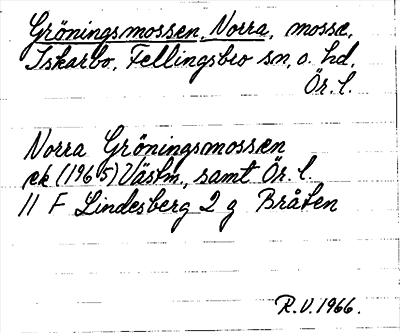 Gröningsmossen, Norra, mosse,
Iskarbo, Fellingsbro sn, o. hd,
Ör. l.
Norra Gröningsmossen
ek (1965) Västm, samt Ör. l.
11 F Lindesberg 2 g Bråten
R.V. 1966.